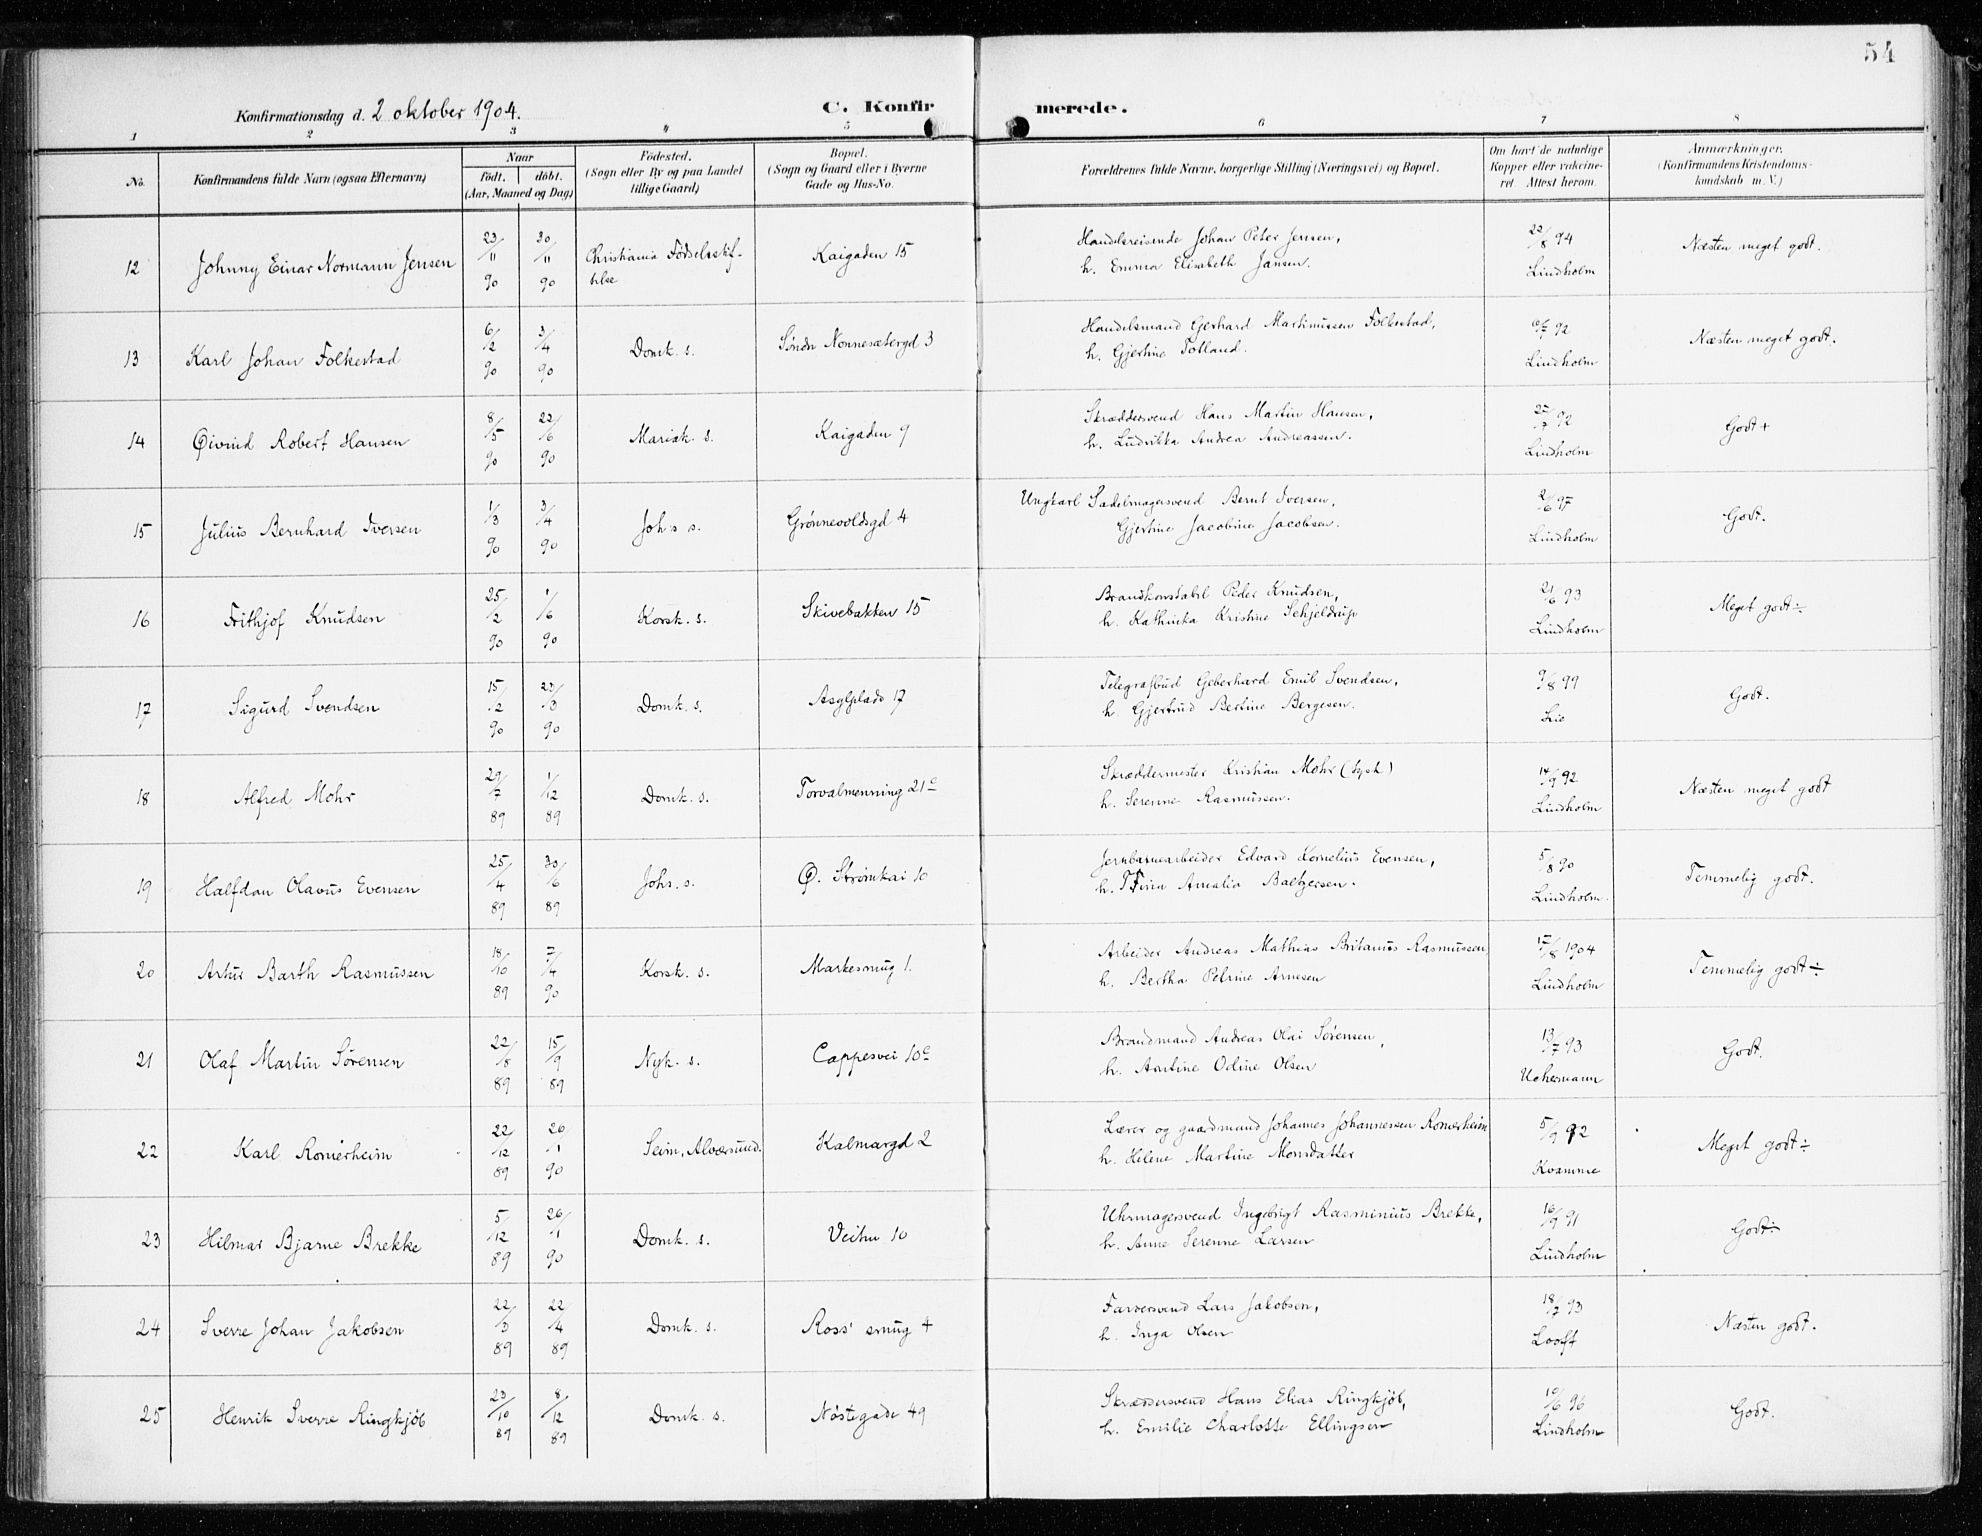 54
Konfirmationsdag d. 2 oktober 1904.
C. Konfirmerede.
1 2 3 4 5 6 7 8
No. Konfirmandens fulde Navn (ogsaa Efternavn) Naar Födt. döbt. (Aar, Maaned og Dag) Födested. (Sogn eller By og paa Landet tillige Gaard) Bopæl. (Sogn og Gaard eller i Byerne Gade og Hus-No. Forældrenes fulde Navne, borgerlige Stilling (Næringsvei) og Bopæl. Om havt de naturlige Kopper eller vakcineret. Attest herom. Anmærkninger. (Konfirmandens Kristendomskundskab m. V.)
12 Johnny Einar Normann Jensen 23/11 90 30/11 90 Christiania Födselsstiftelse Kaigaden 15 Handelsreisende Johan Peter Jensen, h. Emma Elisabeth Jansen. /8 94 Lindholm Næsten meget godt.
13 Karl Johan Folkestad 6/2 90 3/4 90 Domk. s. Söndre Nonnesætergd 3 Handelsmand Gerhard Martinussen Folkestad, h. Gjertine Totland. 92 Lindholm Næsten meget godt.
14 Øivind Robert Hansen 8/5 90 22/6 90 Mariak. s. Kaigaden 9 Skræddersvend Hans Martin Hansen, h. Ludvikka Andrea Andreassen. 27/7 92 Lindholm Godt +
15 Julius Bernhard Iversen 1/3 90 3/4 90 Johs s. Grønnevoldsgd 4 Ungkarl Sadelmagersvend Bernt Iversen, Gjertine Jacobine Jacobsen. 2/6 97 Lindholm Godt.
16 Frithjof Knudsen 25/2 90 1/6 90 Korsk. s. Skivebakken 15 Brandkonstabel Peder Knudsen, h. Kathinka Kristine Schjeldrup 21/6 93 Lindholm Meget godt ÷
17 Sigurd Svendsen 15/2 90 23/3 90 Domk. s. Asylplads 17 Telegrafbud Geberhard Emil Svendsen, h. Gjertrud Bertine Bergesen. 9/8 99 Lie Godt.
18 Alfred Mohr 29/7 89 1/12 89 Domk. s. Torvalmenning 21c Skræddermester Kristian Mohr (tysk) h. Serenne Rasmussen. 14/9 92 Lindholm Næsten meget godt
19 Halfdan Olavus Evensen 25/4 89 30/6 89 Johs. s. Ø. Strömkai 10 Jernbanearbeider Edvard Kornelius Evensen, h. Trina Amalia Baltzersen. 5/8 90 Lindholm. Temmelig godt.
20 Artur Barth Rasmussen 18/10 89 7/4 90 Korsk. s. Markesmug 1. Arbeider Andreas Mathias Britanus Rasmussen h. Bertha Petrine Arnesen 17/8 1904 Lindholm Temmelig godt ÷
21 Olaf Martin Sörensen 22/8 89 15/9 89 Nyk. s. Cappesvei 10c Brandmand Andreas Olai Sörensen, h. Martine Odine Olsen 13/7 93 Uchermann Godt.
22 Karl Romerheim 22/12 89 26/1 90 Seim, Alværsund. Kalmargd 2 Lærer og gaardmand Johannes Johannessen Romerheim h. Helene Martine Monsdatter 5/9 92 Kvamme Meget godt ÷
23 Hilmar Bjarne Brekke 5/12 89 26/1 90 Domk. s. Veiten 10 Uhrmagersvend Ingebrigt Rasminius Brekke, h. Anne Serenne Larsen 16/9 91 Lindholm Godt ÷
24 Sverre Johan Jakobsen 22/3 89 22/4 89 Domk. s. Ross' smug 4 Farversvend Lars Jakobsen, h. Inga Olsen 18/7 93 Looft Næsten godt.
25 Henrik Sverre Ringkjöb 23/10 89 8/12 89 Domk. s. Nöstegade 49 Skræddersvend Hans Elias Ringkjöb, h. Emilie Charlotte Ellingsen 10/6 96 Lindholm Godt.